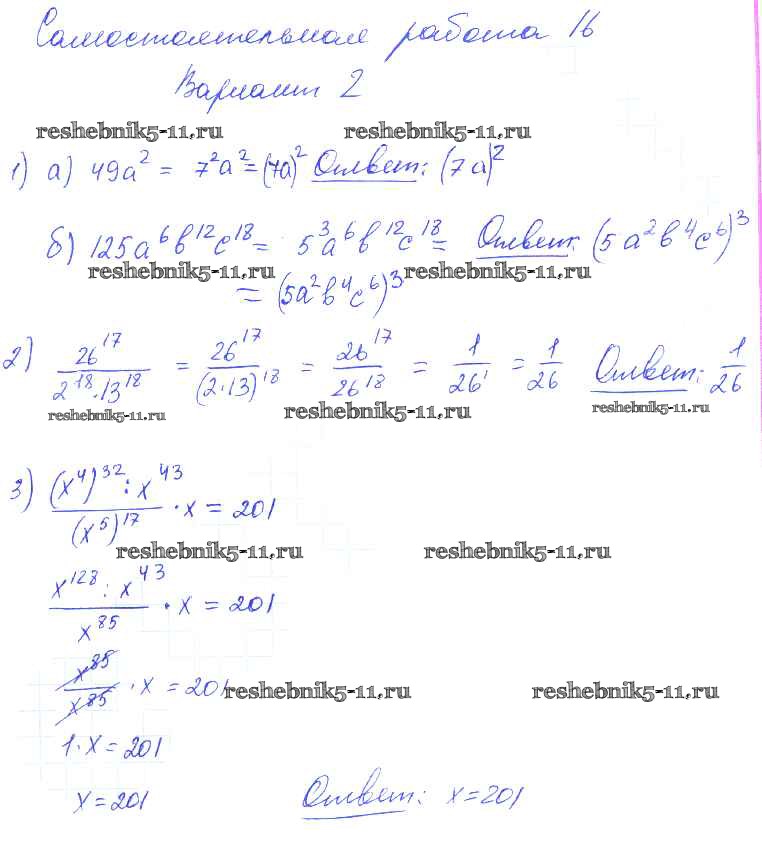 Самостоятельная работа 16
Вариант 2
reshebnik5-11.ru reshebnik5-11.ru
1) а) 49a² = 7²a² = (7a)² Ответ: (7a)²
б) 125a⁶b¹²c¹⁸ = 5³a⁶b¹²c¹⁸ = Ответ: (5a²b⁴c⁶)³
reshebnik5-11.ru reshebnik5-11.ru
= (5a²b⁴c⁶)³
2) 26¹⁷/(2¹⁸·13¹⁸) = 26¹⁷/(2·13)¹⁸ = 26¹⁷/26¹⁸ = 1/26¹ = 1/26 Ответ: 1/26
reshebnik5-11.ru reshebnik5-11.ru reshebnik5-11.ru
3) ((x⁴)³² : x⁴³)/(x⁵)¹⁷ · x = 201
reshebnik5-11.ru reshebnik5-11.ru
(x¹²⁸ : x⁴³)/x⁸⁵ · x = 201
x⁸⁵/x⁸⁵ · x = 201 reshebnik5-11.ru reshebnik5-11.ru
1·x = 201
x = 201 Ответ: x = 201